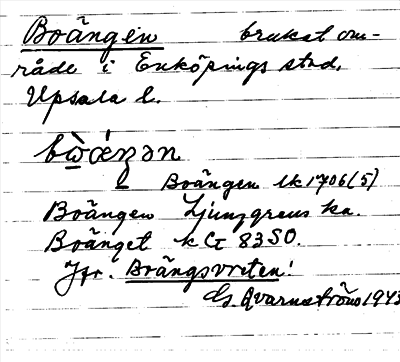 Boängen brukat om-
råde i Enköpings stad,
Upsala l.
bὼǽŋən
Boängen lk 1706 (5)
Boängen Ljunggrens ka.
Boänget kG 83SO.
Jfr. Boängsvreten!
G. Qvarnström 1943